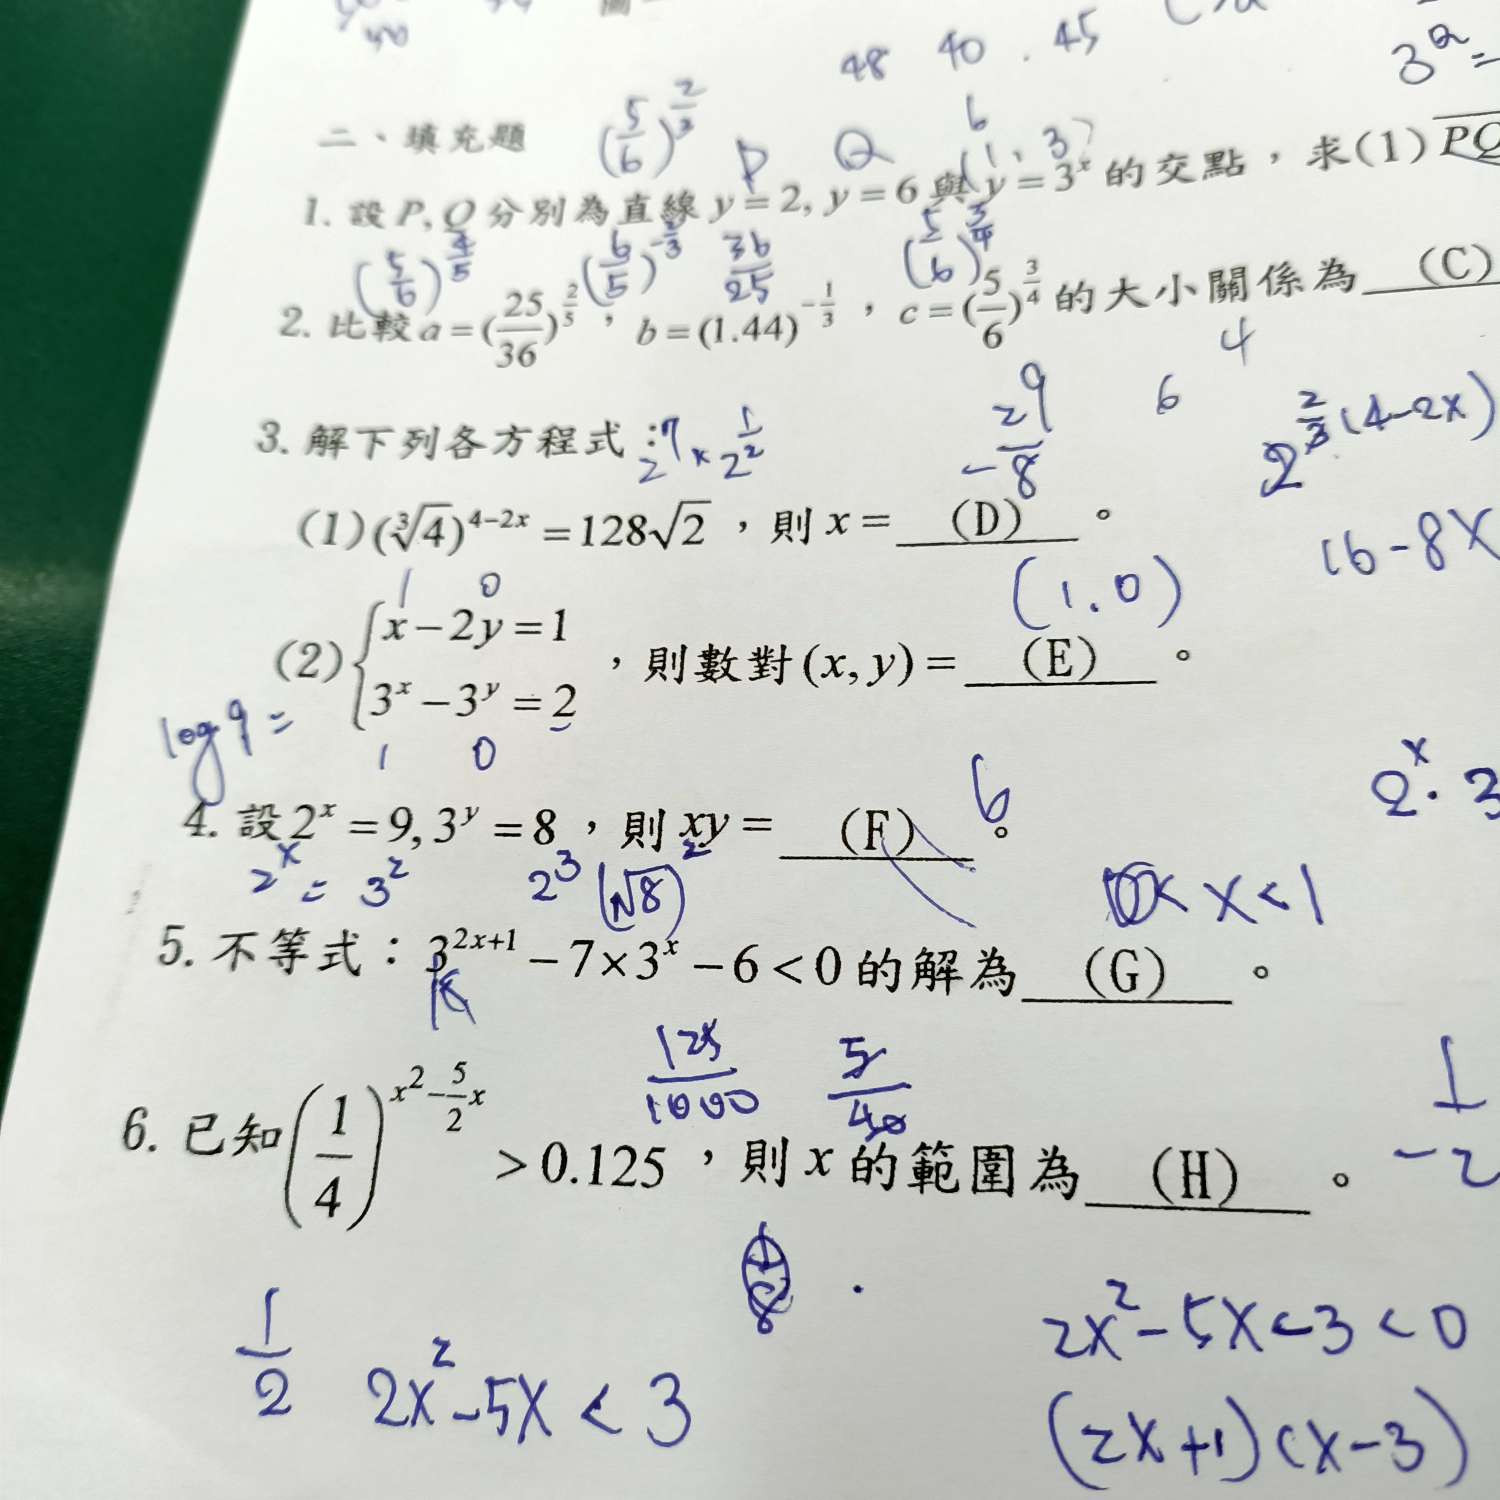 48 40 . 45
3^a =
二、填充題 (5/6)^
P Q 6 (1, 3)
1. 設 P, Q 分別為直線 y = 2, y = 6 與 y = 3^x 的交點,求(1) PQ
(5/6)^{4/5} (6/5)^{-2/3} 36/25 (5/6)^{3/4}
2. 比較 a = (25/36)^{2/5},b = (1.44)^{-1/3},c = (5/6)^{3/4} 的大小關係為 (C)
4
29/-8 6 2^{2/3(4-2x)}
3. 解下列各方程式: 2^7 × 2^{1/2}
(1) (∛4)^{4-2x} = 128√2,則 x = (D)。
16 - 8x
1 0 (1.0)
(2) { x - 2y = 1
3^x - 3^y = 2 ,則數對 (x, y) = (E)。
1 0
log 9 =
2^x · 3
6
4. 設 2^x = 9, 3^y = 8,則 xy = (F)。
2^x = 3^2 2^3 (√8)^2
x < 1
5. 不等式:3^{2x+1} - 7×3^x - 6 < 0 的解為 (G)。
125/1000 5/40
6. 已知 (1/4)^{x^2 - 5/2 x} > 0.125,則 x 的範圍為 (H)。
1
-2
8
1/2 2x^2 - 5x < 3
2x^2 - 5x - 3 < 0
(2x+1)(x-3)